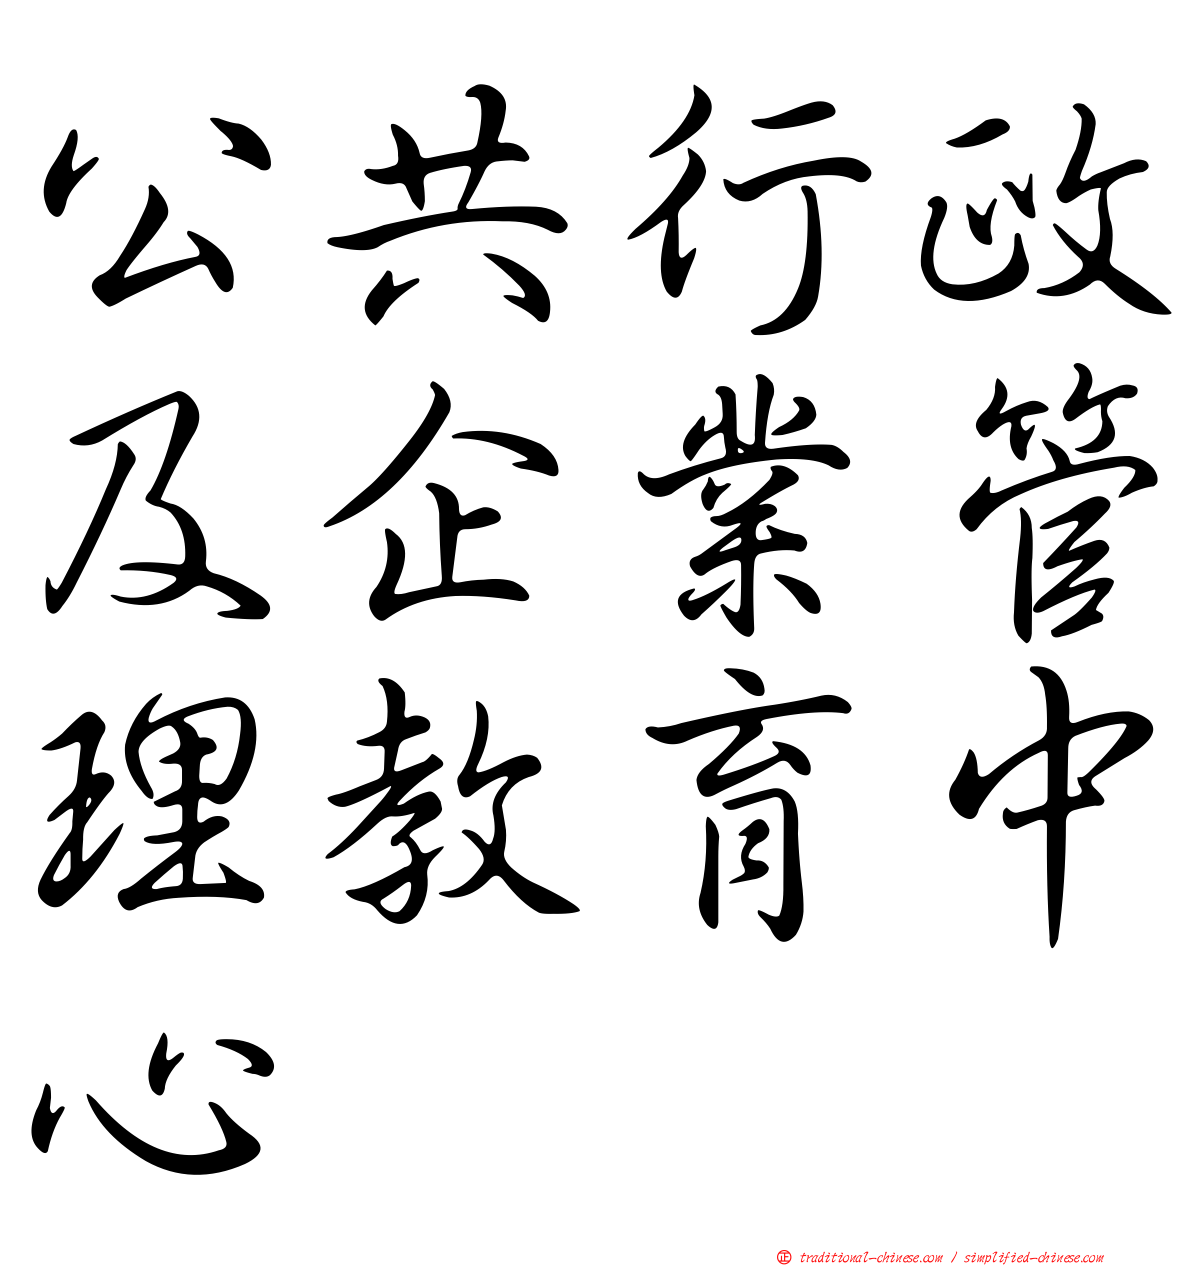 公共行政
及企業管
理教育中
心
正 traditional-chinese.com / simplified-chinese.com